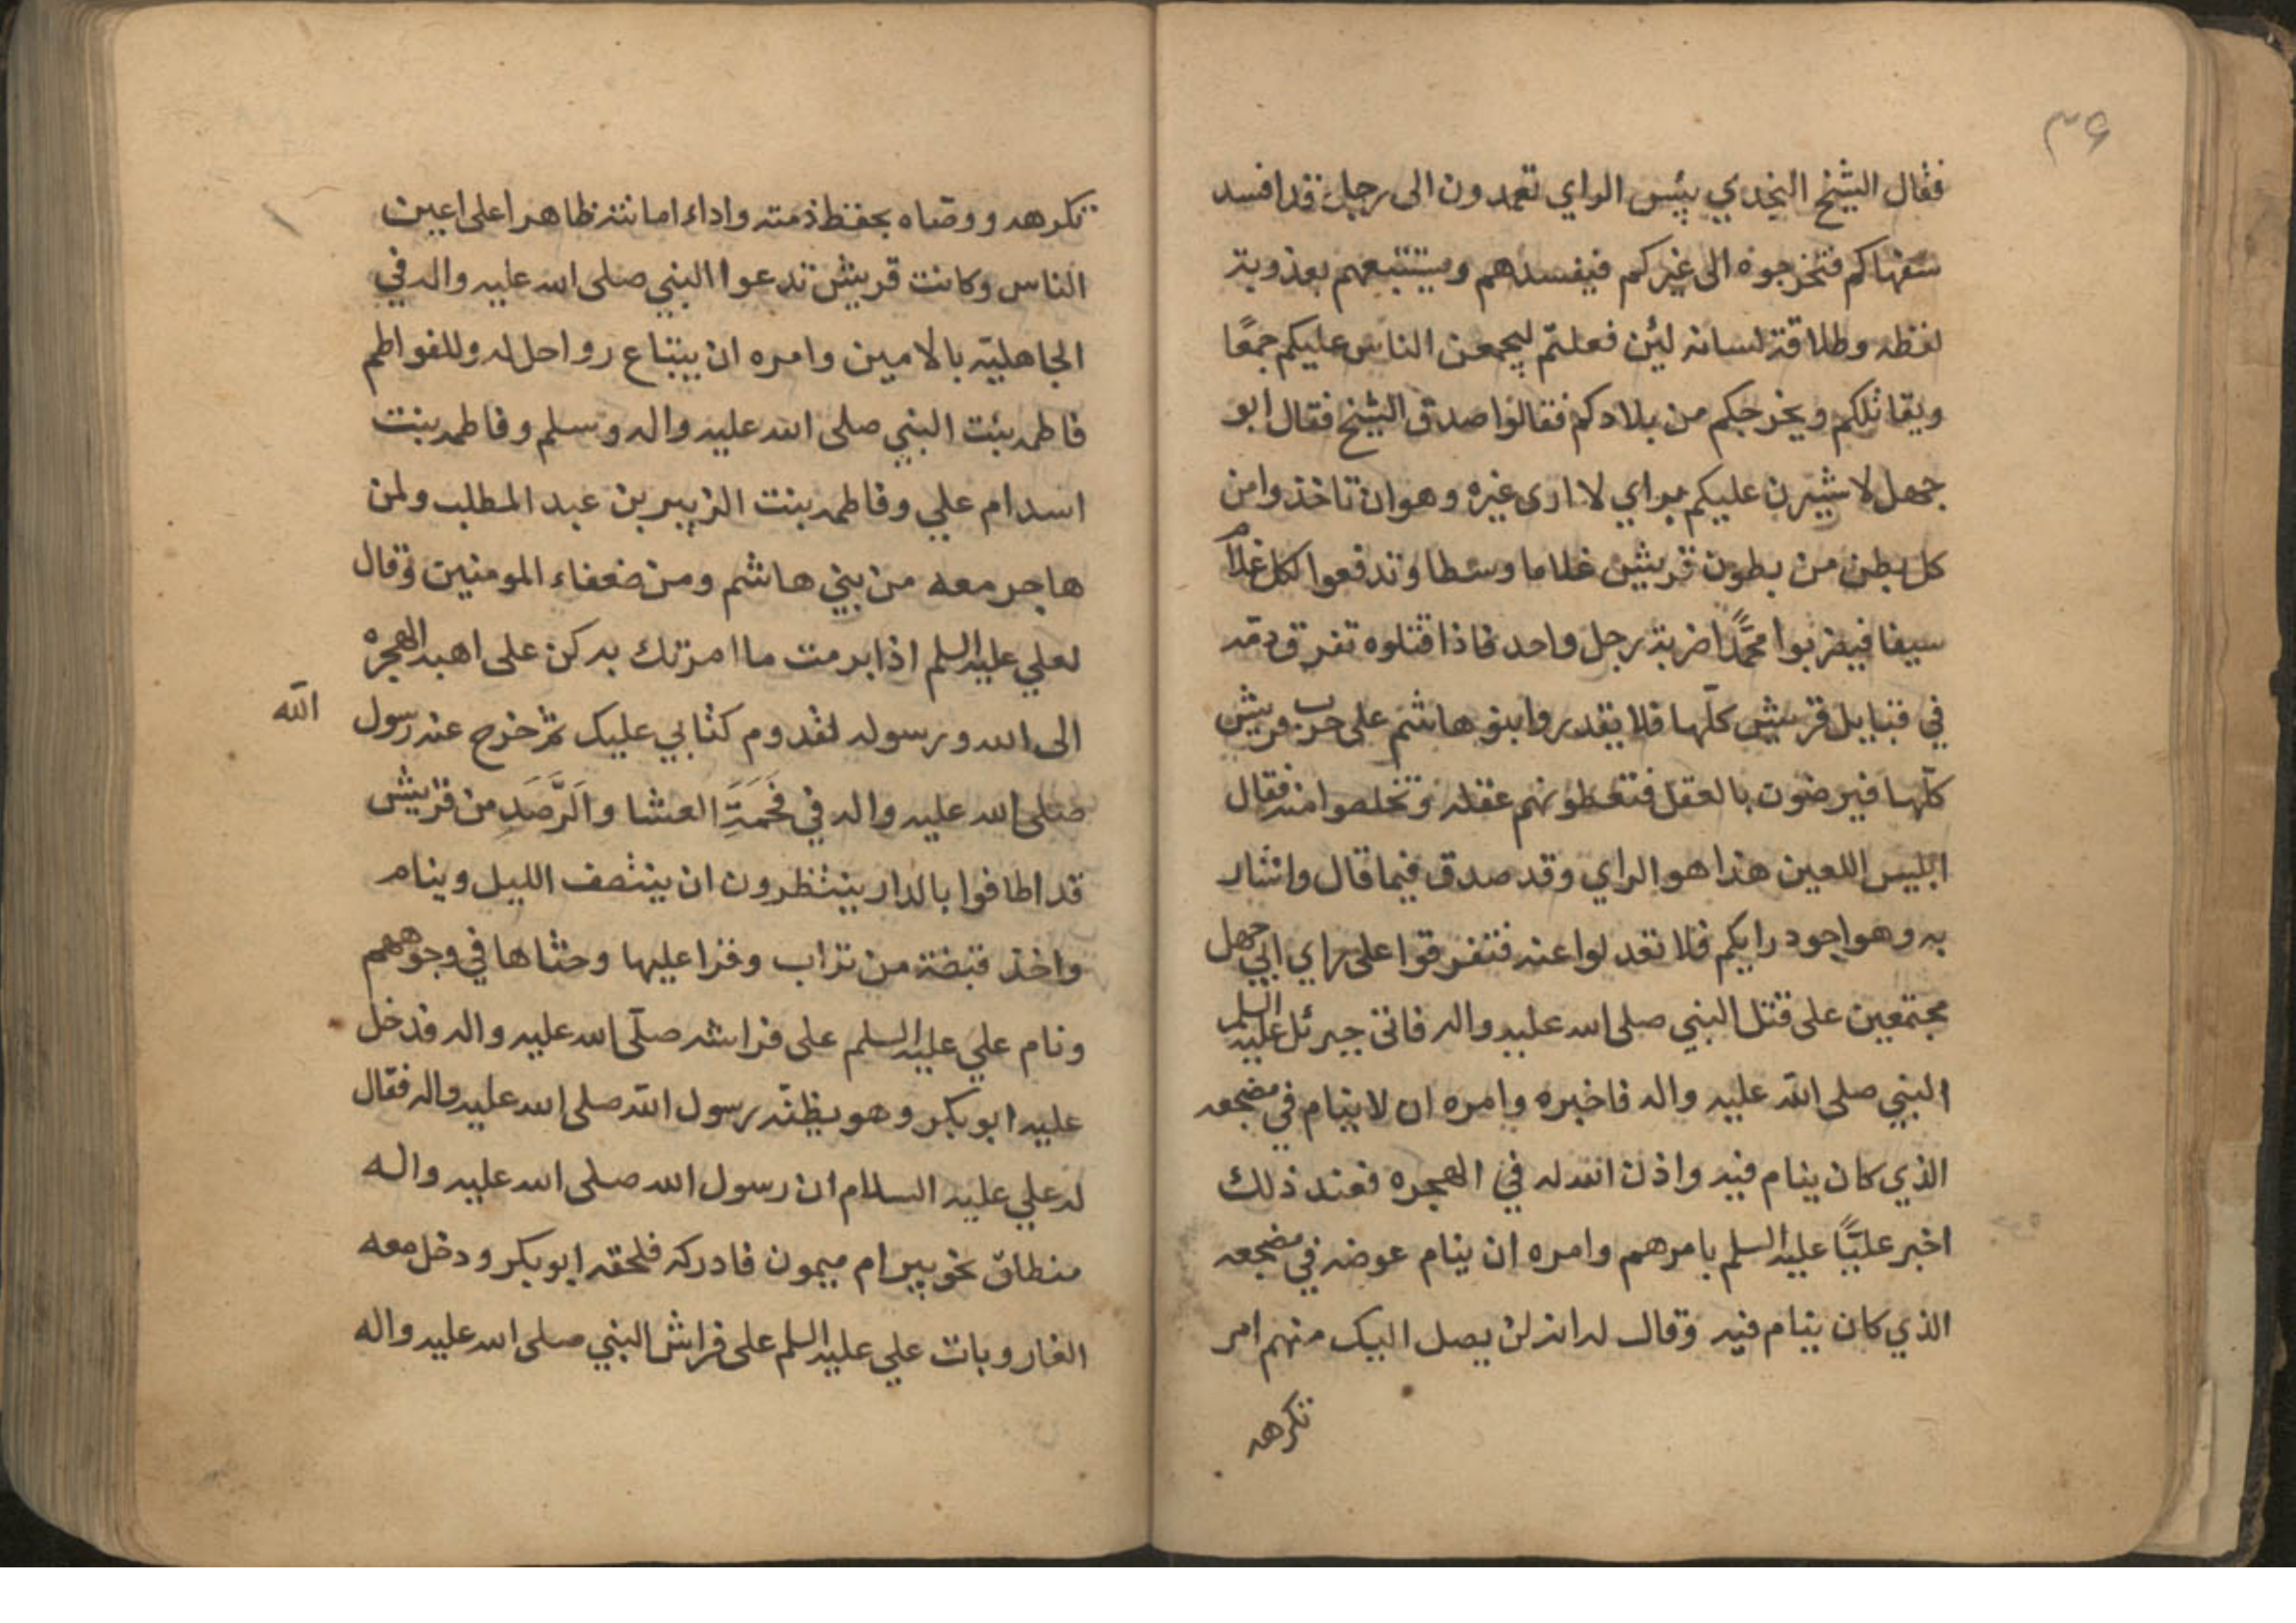 ٣٦
فقال الشيخ النجدي بئس الراي تعمدون الى رجل قد افسد
سفهاكم فتخرجوه الى غيركم فيفسدهم ويستتبعهم بعذوبة
لفظه وطلاقة لسانه لئن فعلتم ليجمعن الناس عليكم جمعًا
ويقاتلكم ويخرجكم من بلادكم فقالوا صدق الشيخ فقال ابو
جهل لاشيرن عليكم براي لا ارى غيره وهو ان تاخذوا من
كل بطن من بطون قريش غلاما وسطا وتدفعوا لكل غلام
سيفا فيضربوا محمّدًا ضربة رجل واحد فاذا قتلوه تفرق دمه
في قبايل قريش كلّها فلا يقدروا بنو هاشم على حرب قريش
كلّها فيرضون بالعقل فتعطونهم عقله وتخلصوا منه فقال
ابليس اللعين هذا هو الراي وقد صدق فيما قال واشار
به وهو اجود رايكم فلا تعدلوا عنه فتفرقوا على راي ابي جهل
مجتمعين على قتل النبي صلى الله عليه واله فاتى جبرئل عليه السلم
النبي صلى الله عليه واله فاخبره وامره ان لا ينام في مضجعه
الذي كان ينام فيه واذن الله له في الهجره فعند ذلك
اخبر عليًّا عليه السلم بامرهم وامره ان ينام عوضه في مضجعه
الذي كان ينام فيه وقال له انه لن يصل اليك منهم امر
تكرهه
تكرهه ووصّاه بحفظ ذمته واداء امانته ظاهرا على اعين
الناس وكانت قريش تدعوا النبي صلى الله عليه واله في
الجاهليّه بالامين وامره ان يبتاع رواحل له وللفواطم
فاطمه بنت النبي صلى الله عليه واله وسلم وفاطمه بنت
اسد ام علي وفاطمه بنت الزبير بن عبد المطلب ولمن
هاجر معه من بني هاشم ومن ضعفاء المومنين وقال
لعلي عليه السلم اذا ابرمت ما امرتك به كن على اهبه الهجره
الى الله ورسوله لقدوم كتابي عليك ثم خرج عنه رسول
الله
صلى الله عليه واله في فَحَمَةِ العشا والرَّصَدِ من قريش
قد اطافوا بالدار ينتظرون ان ينتصف الليل وينام
واخذ قبضة من تراب وقرا عليها وحثاها في وجوههم
ونام علي عليه السلم على فراشه صلّى الله عليه واله فدخل
عليه ابو بكر وهو يظنّه رسول الله صلى الله عليه واله فقال
له علي عليه السلام ان رسول الله صلى الله عليه واله
منطلق نحو بير ام ميمون فادركه فلحقه ابو بكر ودخل معه
الغار وبات علي عليه السلم على فراش النبي صلى الله عليه واله